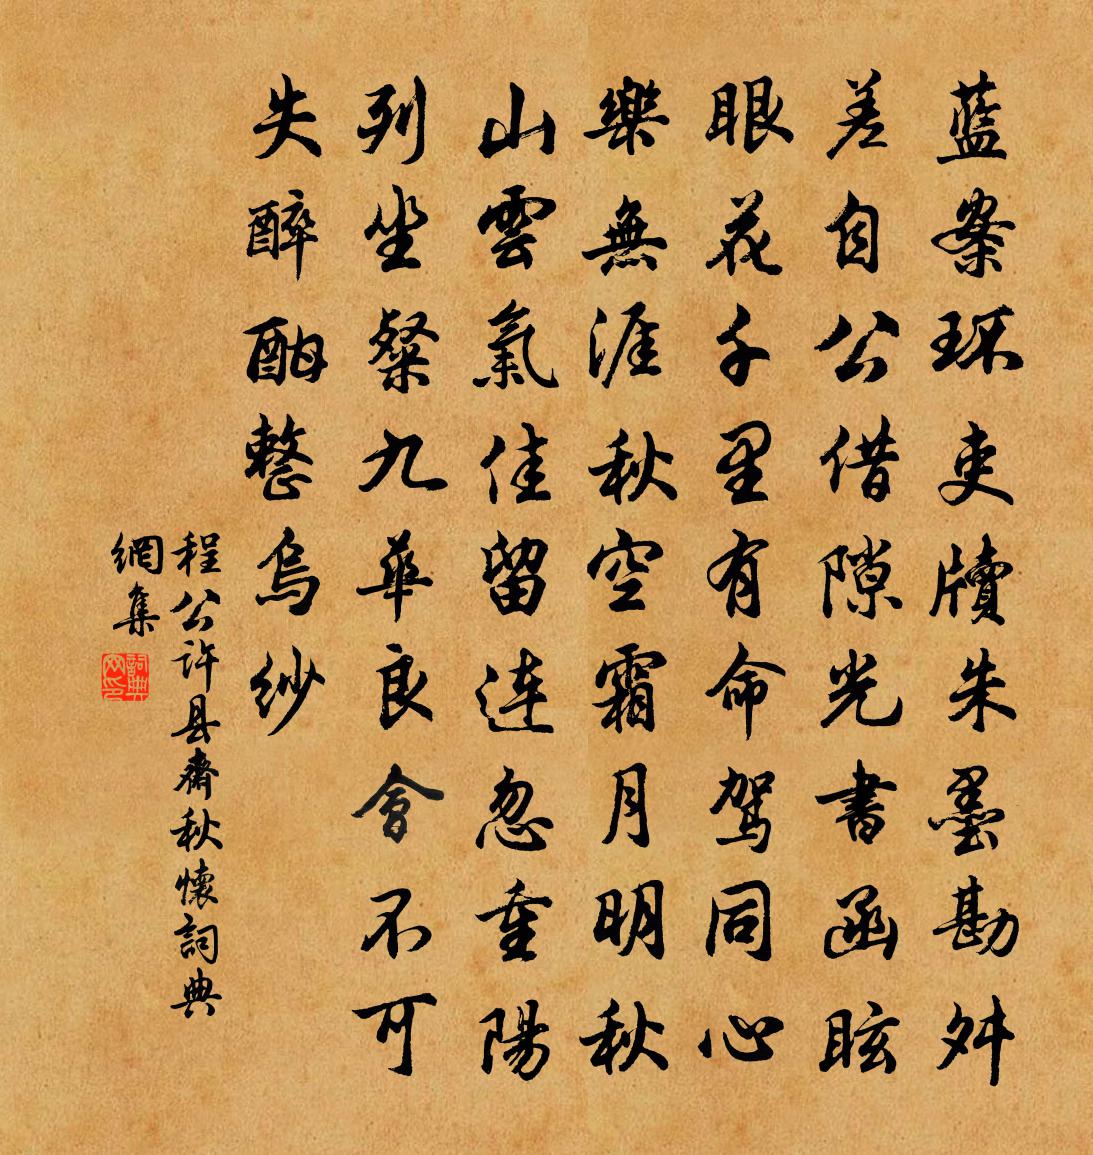 藍案环吏牘朱墨勘舛
差自公借隙光書函眩
眼花千里有命駕同心
樂無涯秋空霜月明秋
山雲氣佳留連忽重陽
列坐粲九華良會不可
失醉酣整烏紗
程公许县齋秋懷詞典
網集
詞典